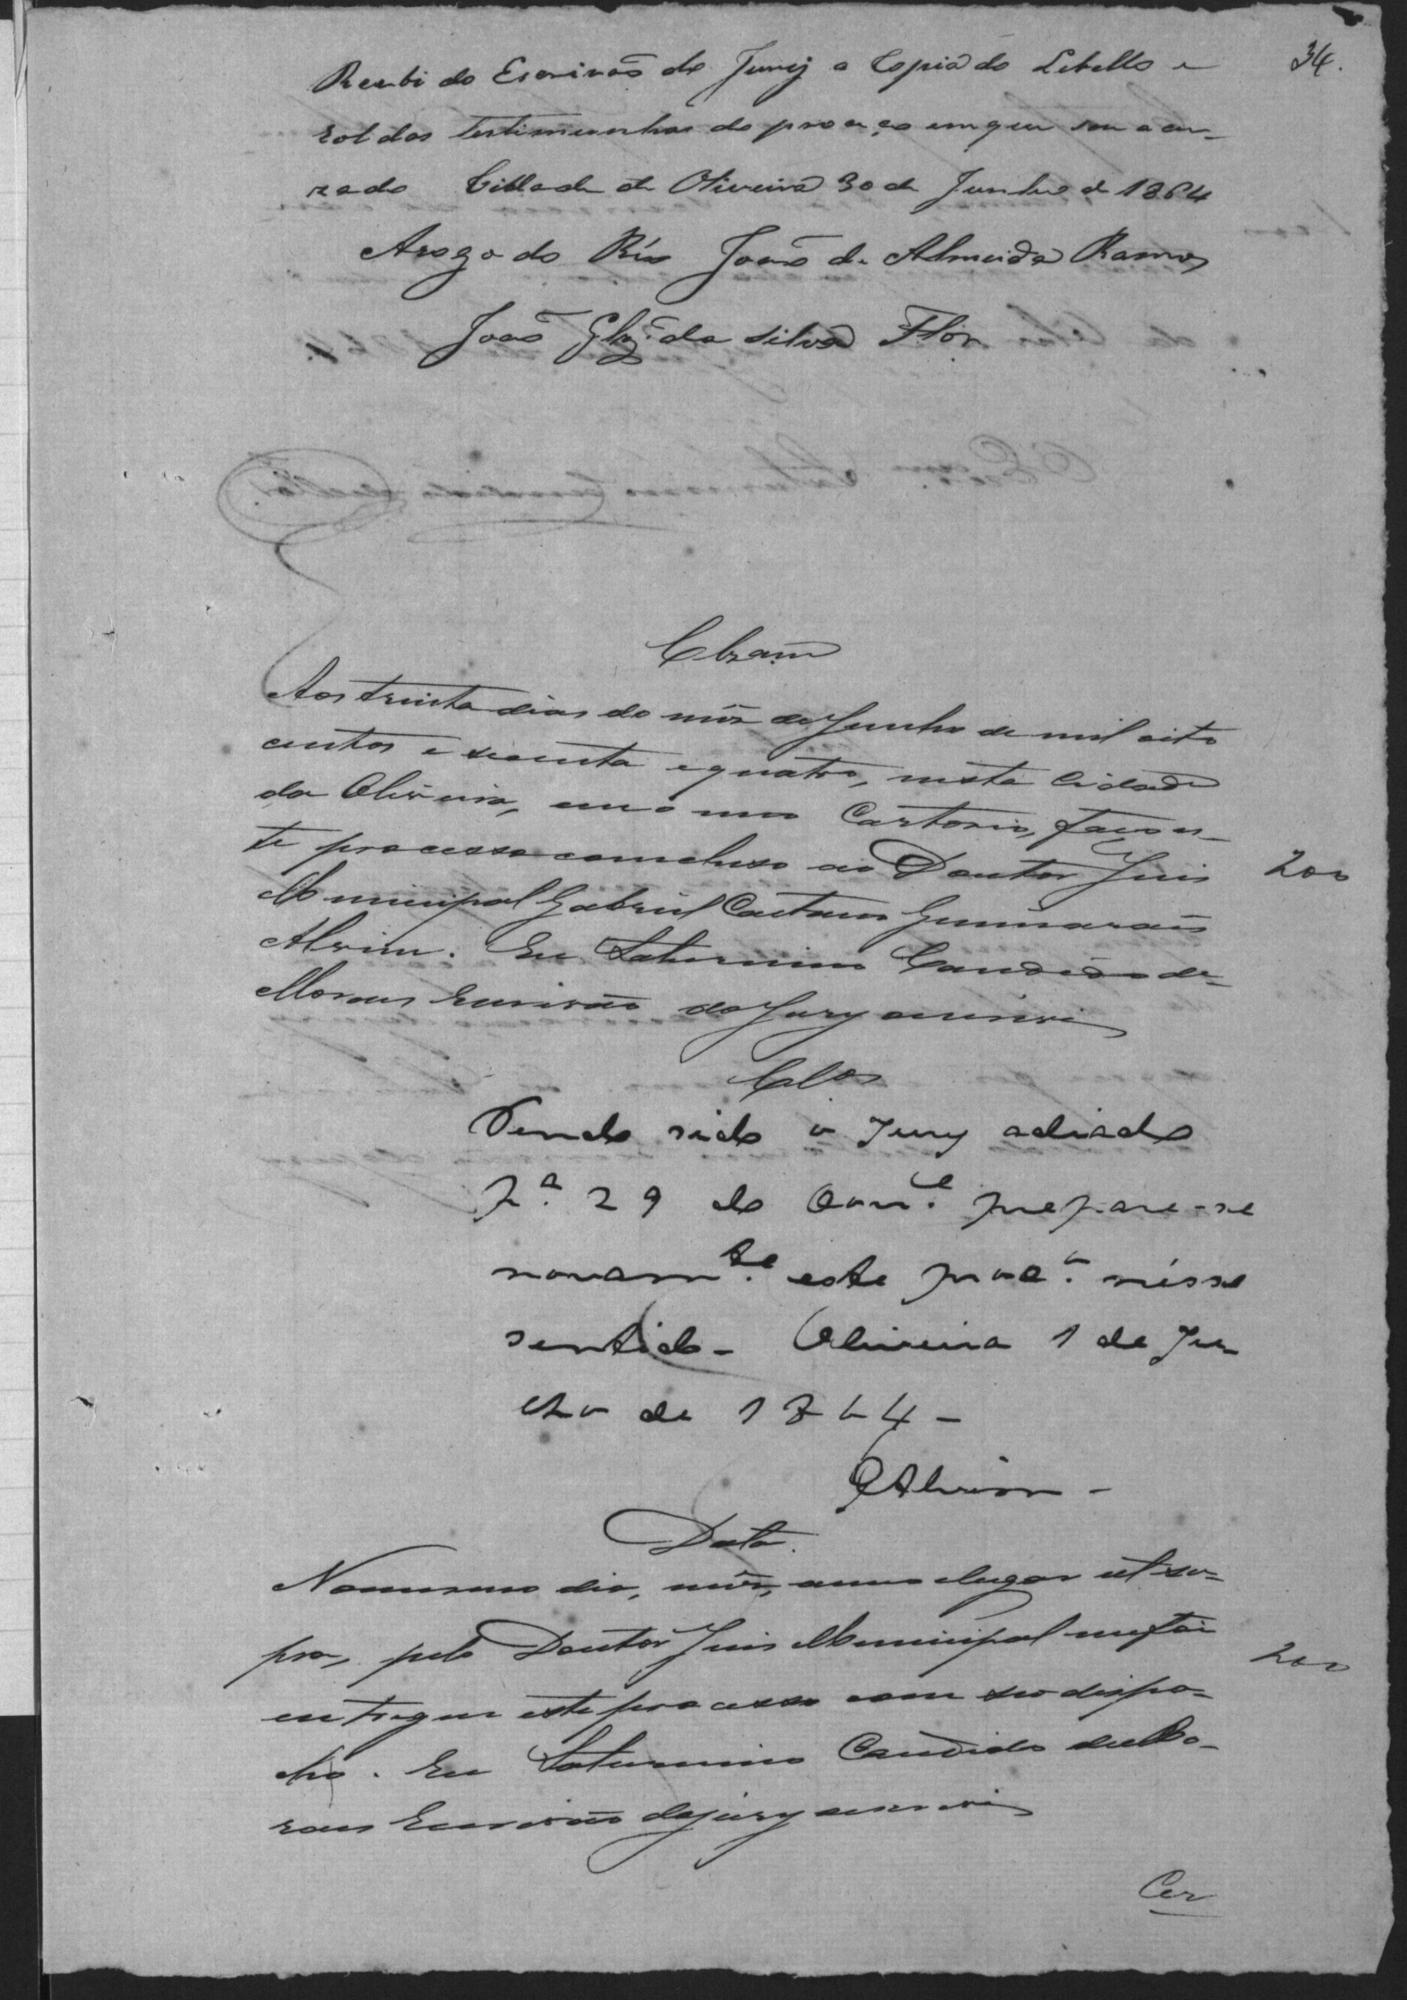 34.
Recebi do Escrivaõ do Jury a Copia do Libello e
rol das testimunhas do proceço em que sou acu-
zado Cidade de Oliveira 30 de Junho de 1864
Arogo do Réo João de Almeida Ramos
João Glz. da Silva Flor
Clzam
Aos trinta dias do mês de Junho de mil oito
centos e secenta e quatro, nesta Cidade
da Oliveira, em o meo Cartorio, faço es-
te processo concluso ao Doutor Juis
Municipal Gabriel Caetano Guimarães
Alvim. Eu Saturnino Candido de
Moraes Escrivão do Jury escrevi
200
Clos
Tendo sido o Jury adiado
pª 29 do corre. prepare-se
novamte. este proco. nésse
sentido - Oliveira 1 de Ju
lho de 1864 -
GAlvim -
Data.
No mesmo dia, mês, anno e lugar ut su-
pra, pelo Doutor Juis Municipal me foi
entregue este processo com seo despa-
cho. Eu Saturnino Candido de Mo-
raes Escrivão do jury escrevi
200
Cer